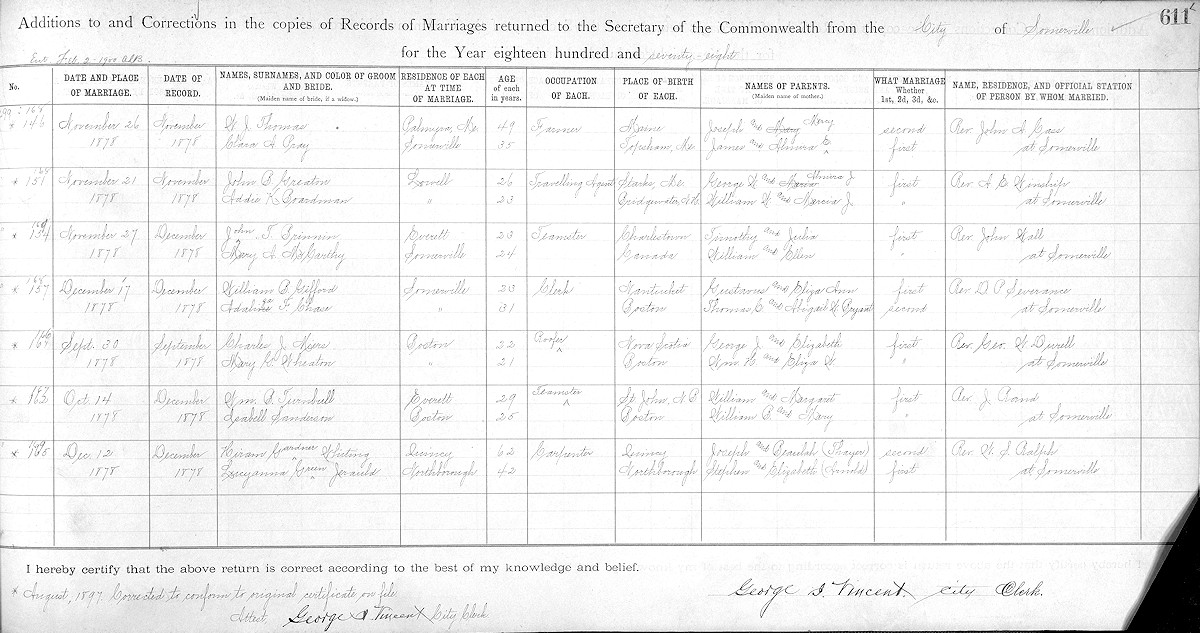 611
Additions to and Corrections in the copies of Records of Marriages returned to the Secretary of the Commonwealth from the City of Somerville
for the Year eighteen hundred and seventy-eight
Ent. Feb. 2-1900
No. DATE AND PLACE OF MARRIAGE. DATE OF RECORD. NAMES, SURNAMES, AND COLOR OF GROOM AND BRIDE. (Maiden name of bride, if a widow.) RESIDENCE OF EACH AT TIME OF MARRIAGE. AGE of each in years. OCCUPATION OF EACH. PLACE OF BIRTH OF EACH. NAMES OF PARENTS. (Maiden name of mother.) WHAT MARRIAGE Whether 1st, 2d, 3d, &c. NAME, RESIDENCE, AND OFFICIAL STATION OF PERSON BY WHOM MARRIED.
* 146 November 26 November W. J. Thomas Palmyra, Me. 49 Farmer Maine Joseph and Mary Mercy second Rev. John A. Cass
1878 1878 Clara A. Gray Somerville 35 Topsham, Me. James and Almira E. first at Somerville
* 151 November 21 November John B. Greaton Lowell 26 Travelling Agent Starks, Me. George W. and Maria Almira J. first Rev. A. E. Winship
1878 1878 Addie K. Boardman " 23 Bridgewater, N.H. William W. and Marcia J. " at Somerville
* 154 November 27 December John T. Brinnin Everett 23 Teamster Charlestown Timothy and Julia first Rev. John Wall
1878 1878 Mary A. McCarthy Somerville 24 Canada William and Ellen " at Somerville
* 157 December 17 December William B. Gifford Somerville 23 Clerk Nantucket Gustavus and Eliza Ann first Rev. D. P. Severance
1878 1878 F. Chase " 31 Boston Thomas C. and Abigail W. Bryant second at Somerville
* Sept. 30 September Charles J. Myers Boston 22 Roofer Nova Scotia George J. and Elizabeth first Rev. Geo. W. Durell
1878 1878 Mary G. Wheaton " 21 Boston Wm. H. and Eliza W. " at Somerville
* Oct. 14 December Wm. B. Turnbull Everett 29 Teamster St John, N.B. William and Margaret first Rev. J. Rand
1878 1878 Isabell Sanderson Boston 25 Boston William B. and Mary " at Somerville
* Dec. 12 December Hiram Gardner Whiting Quincy 62 Carpenter Quincy Joseph and Beulah (Thayer) second Rev. W. S. Ralph
1878 1878 Lucyanna Green Northborough 42 Northborough Stephen and Elizabeth (Arnold) first at Somerville
I hereby certify that the above return is correct according to the best of my knowledge and belief.
* August, 1897. Corrected to conform to original certificate on file. George I. Vincent City Clerk.
Attest, George I. Vincent City Clerk